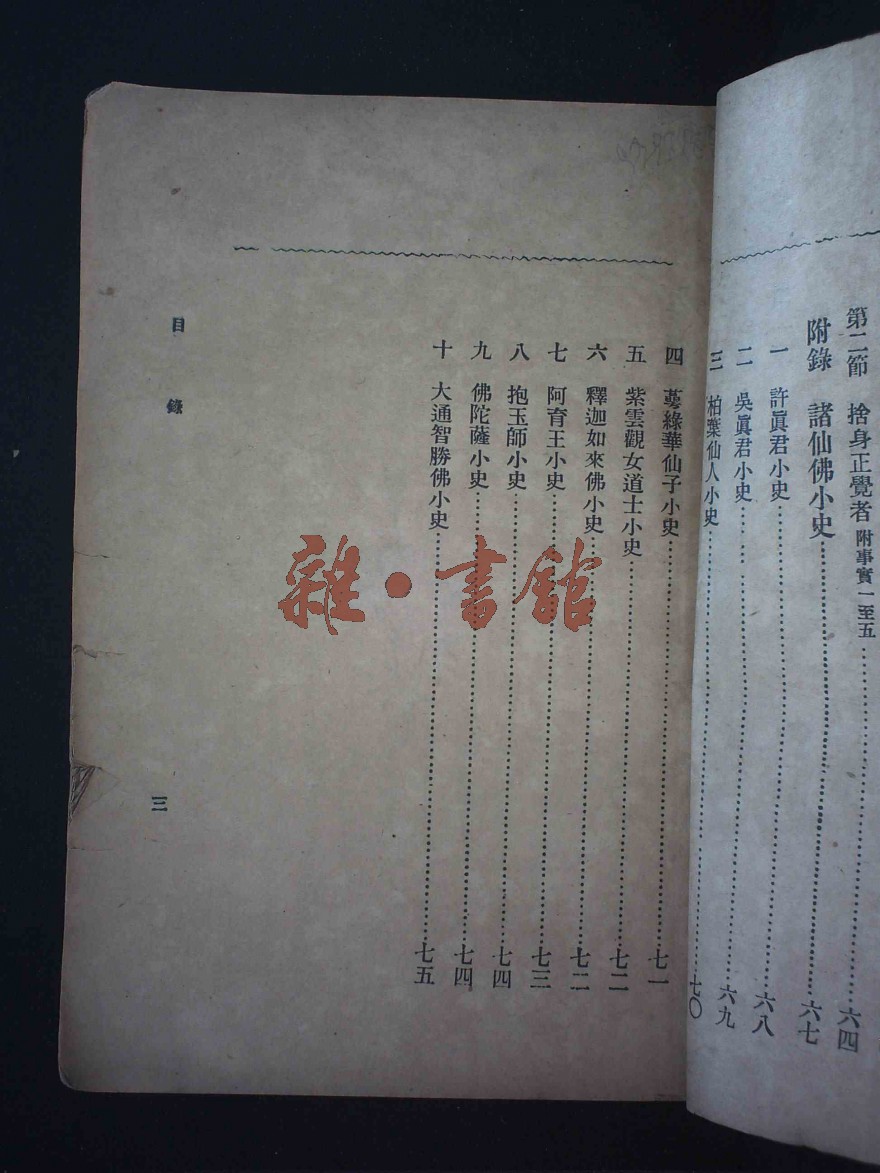 第二節 捨身正覺者 附事實一至五……六四
附錄 諸仙佛小史……六七
一 許眞君小史……六八
二 吳眞君小史……六九
三 柏葉仙人小史……七〇
四 萼綠華仙子小史……七一
五 紫雲觀女道士小史……七二
六 釋迦如來佛小史……七二
七 阿育王小史……七三
八 抱玉師小史……七四
九 佛陀薩小史……七四
十 大通智勝佛小史……七五
目錄
三
雜·書館